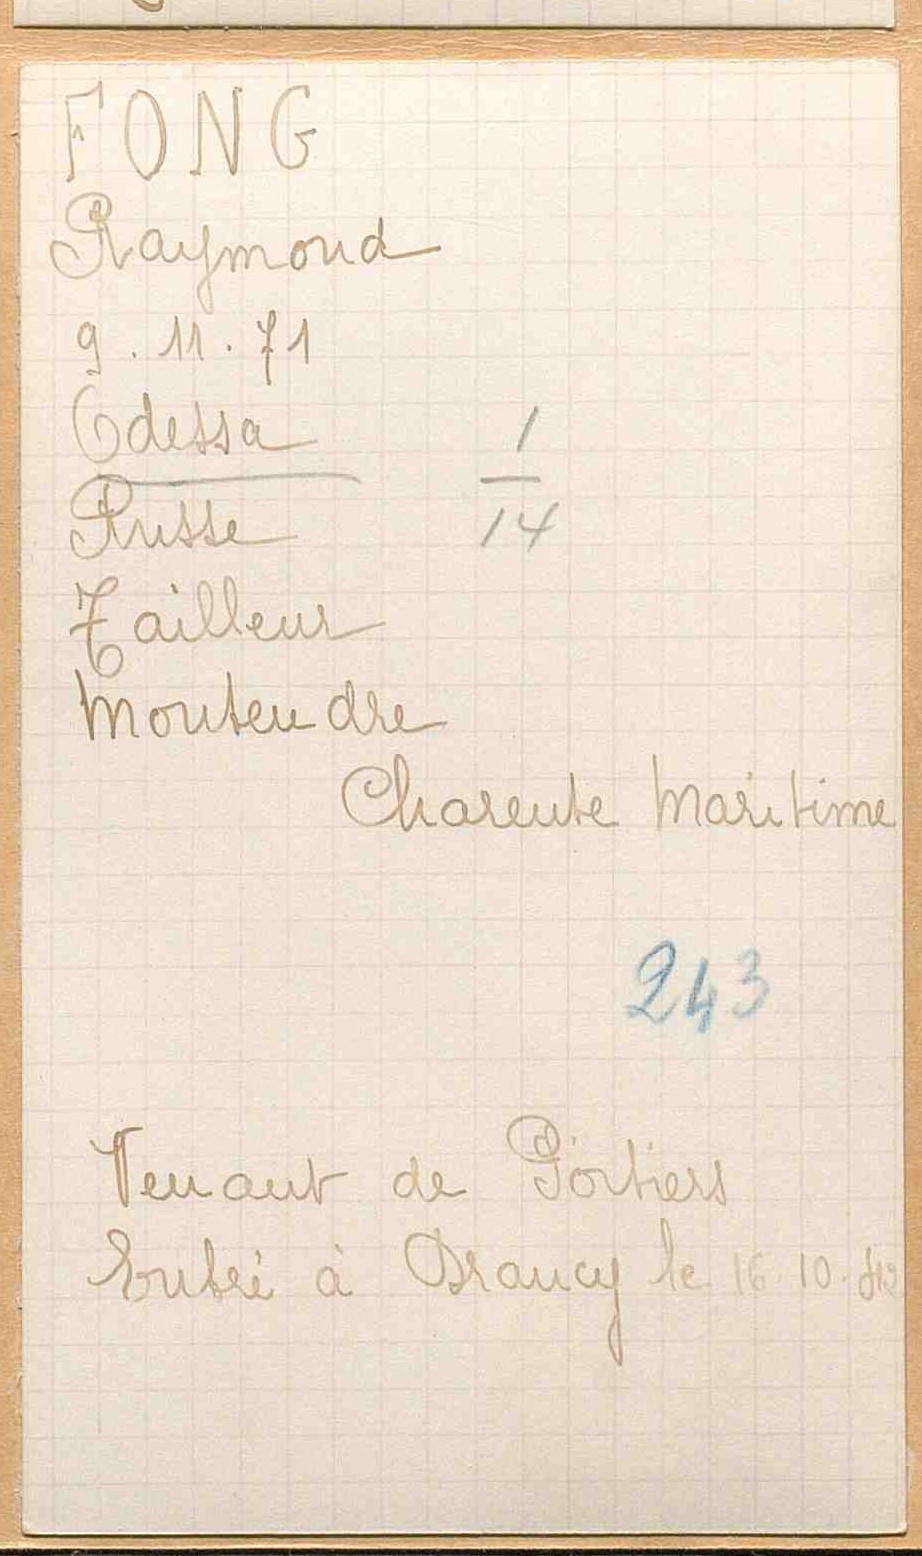 FONG
Raymond
9.11.71
Odessa
1
14
Russe
Tailleur
Montendre
Charente Maritime
243
Venant de Poitiers
Entré à Drancy le 16 10.42